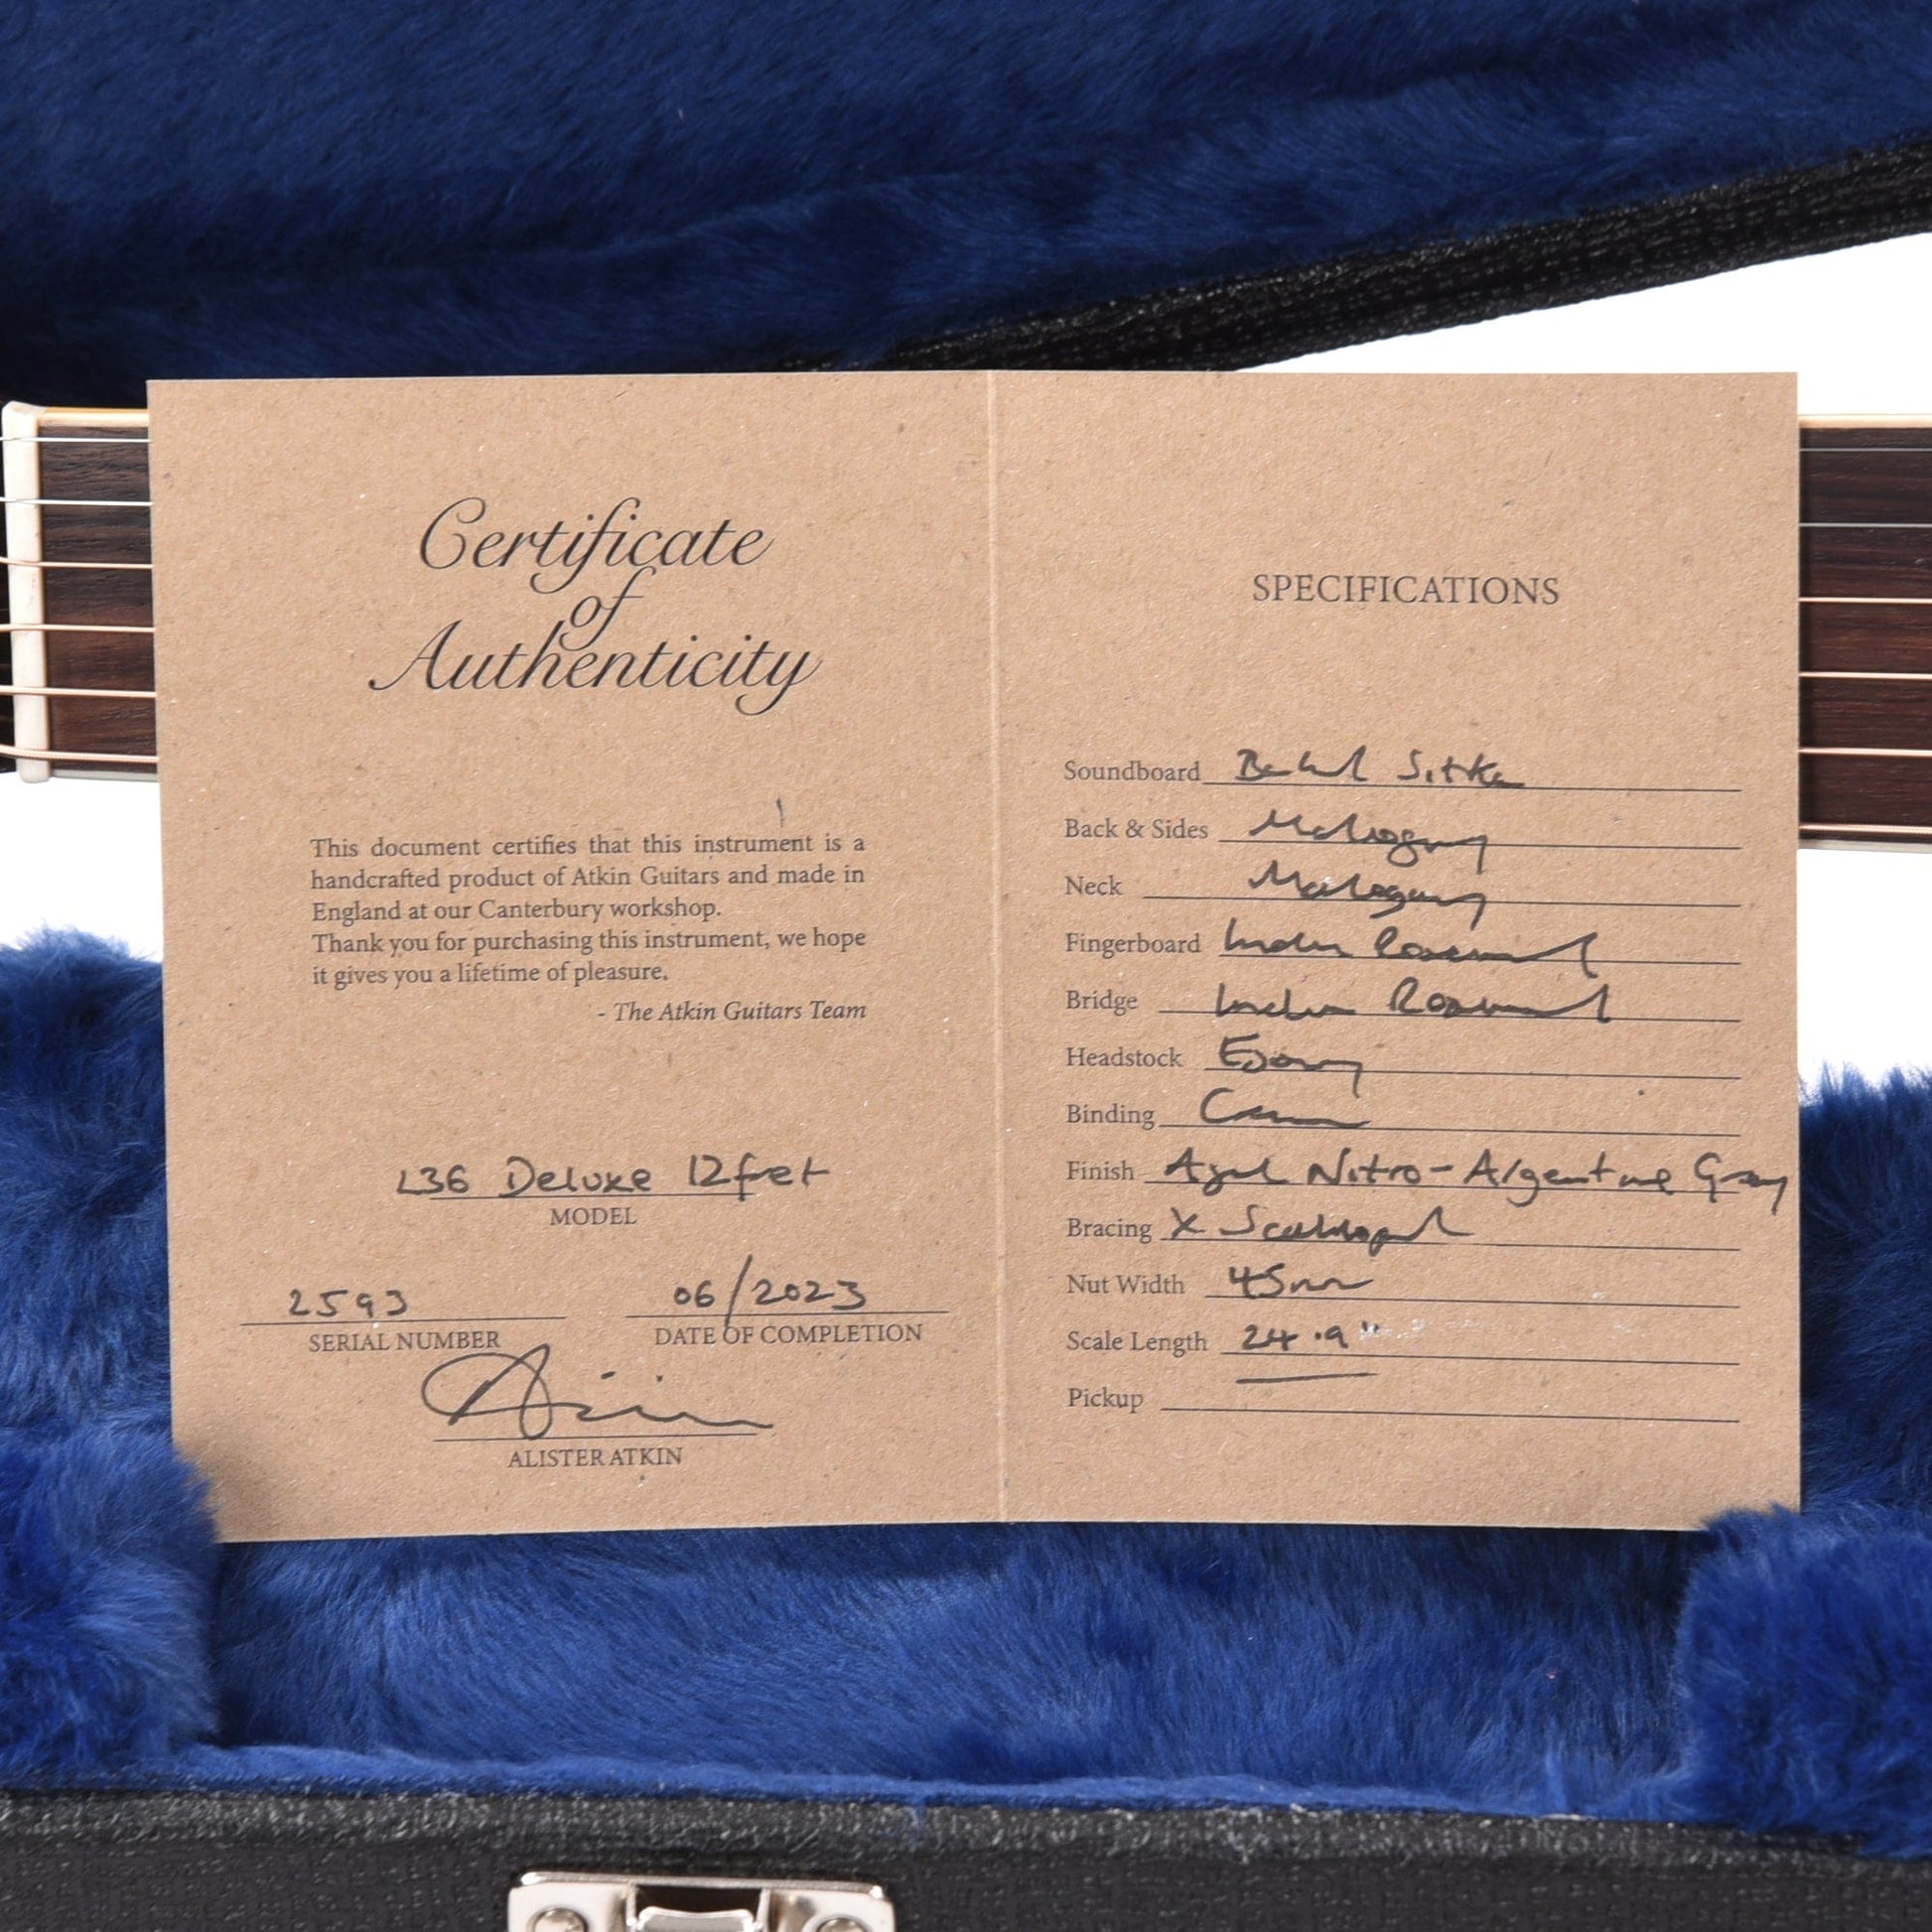 Certificate
of
Authenticity
This document certifies that this instrument is a
handcrafted product of Atkin Guitars and made in
England at our Canterbury workshop.
Thank you for purchasing this instrument, we hope
it gives you a lifetime of pleasure.
- The Atkin Guitars Team
L36 Deluxe 12fret
MODEL
2593
SERIAL NUMBER
06/2023
DATE OF COMPLETION
Atkin
ALISTER ATKIN
SPECIFICATIONS
Soundboard Baked Sitka
Back & Sides Mahogany
Neck Mahogany
Fingerboard Indian Rosewood
Bridge Indian Rosewood
Headstock Ebony
Binding Cream
Finish Aged Nitro - Argentine Gray
Bracing X Scalloped
Nut Width 45mm
Scale Length 24.9"
Pickup